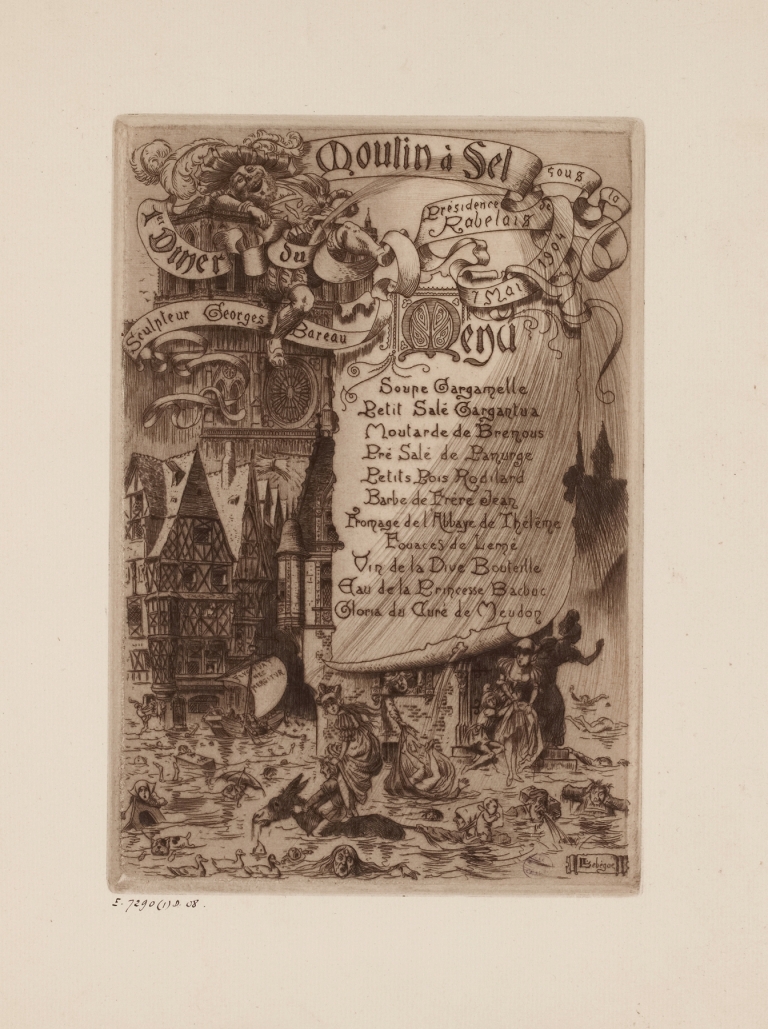 1er Diner du
Moulin à Sel
sous la
Présidence de
Rabelais
7 Mai 1904
Sculpteur Georges Bareau
Menu
Soupe Gargamelle
Petit Salé Gargantua
Moutarde de Bremous
Pré Salé de Panurge
Petits Pois Rodilard
Barbe de Frère Jean
Fromage de l'Abbaye de Thélème
Fouaces de Lerné
Vin de la Dive Bouteille
Eau de la Princesse Bacbuc
Gloria du Curé de Meudon
MERGITUR
LLebègue
E. 7290 (1) D. 08.